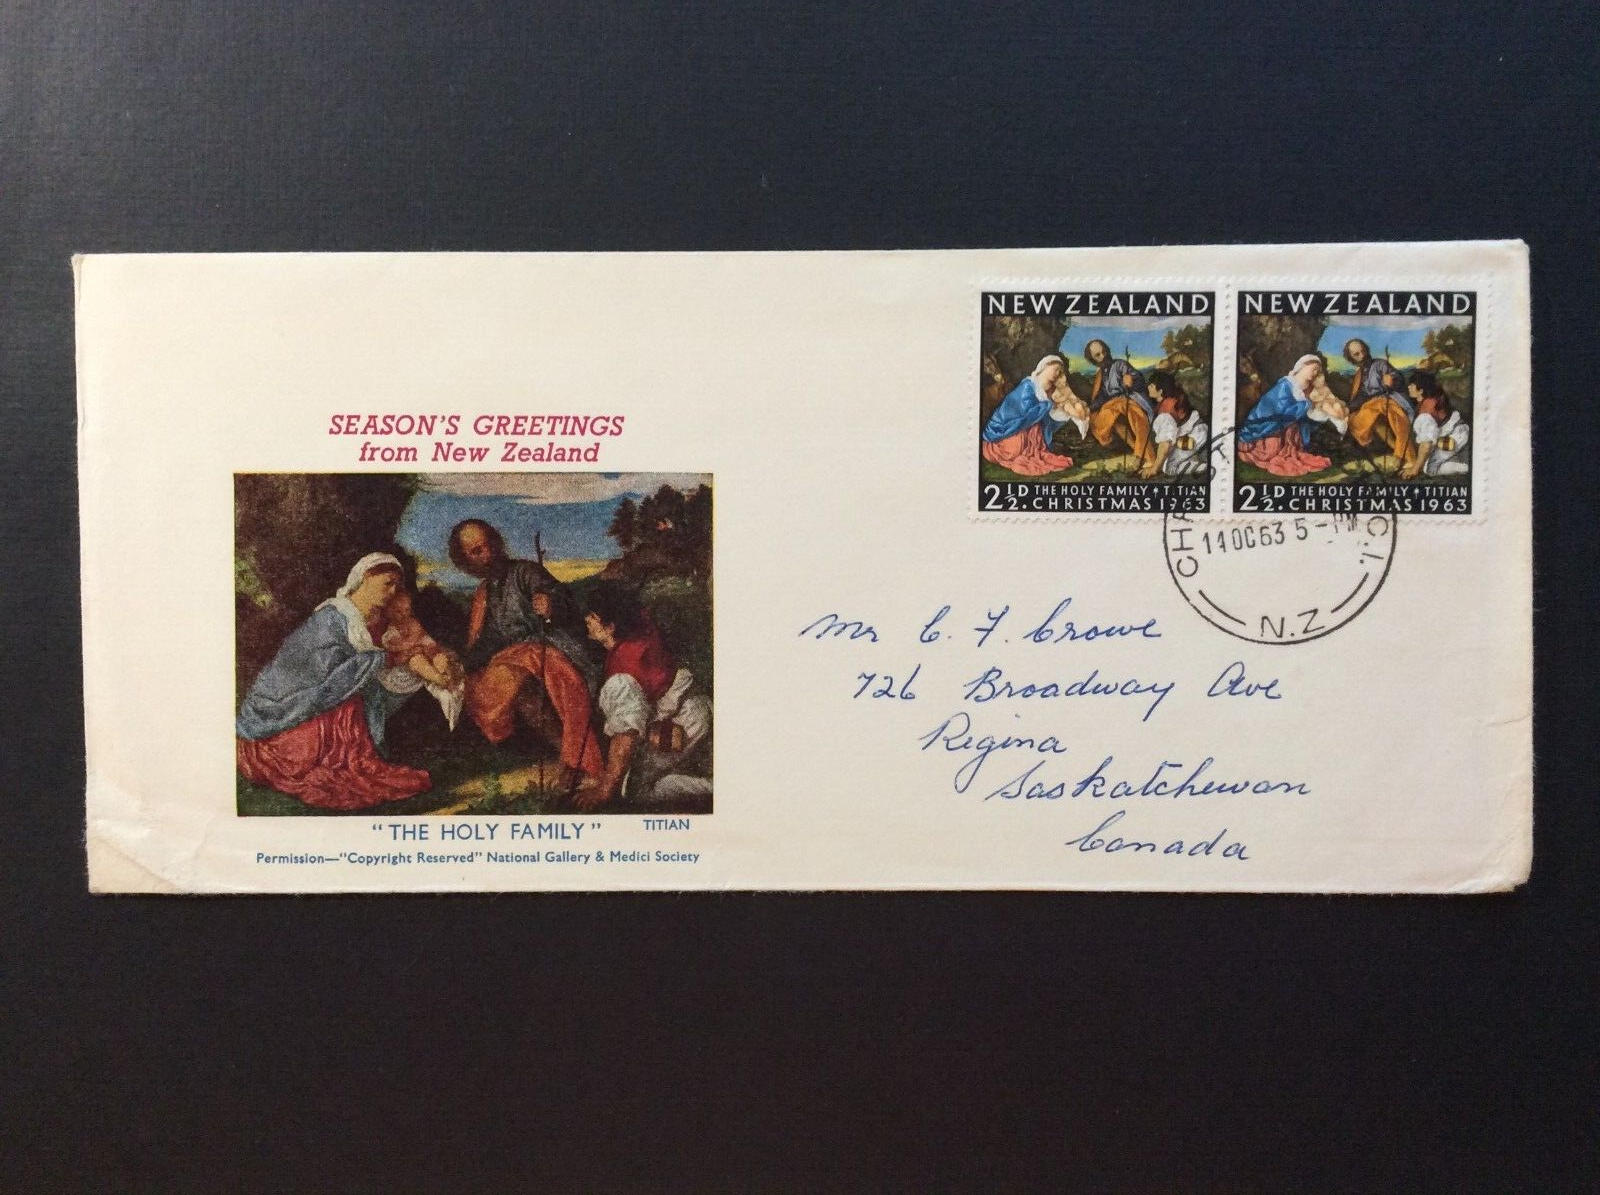 SEASON'S GREETINGS
from New Zealand
"THE HOLY FAMILY" TITIAN
Permission—"Copyright Reserved" National Gallery & Medici Society
NEW ZEALAND
2½D. THE HOLY FAMILY TITIAN
CHRISTMAS 1963
NEW ZEALAND
2½D. THE HOLY FAMILY TITIAN
CHRISTMAS 1963
14 OC 63 5 - PM
N.Z
Mr C. F. Crowe
726 Broadway Ave
Regina
Saskatchewan
Canada